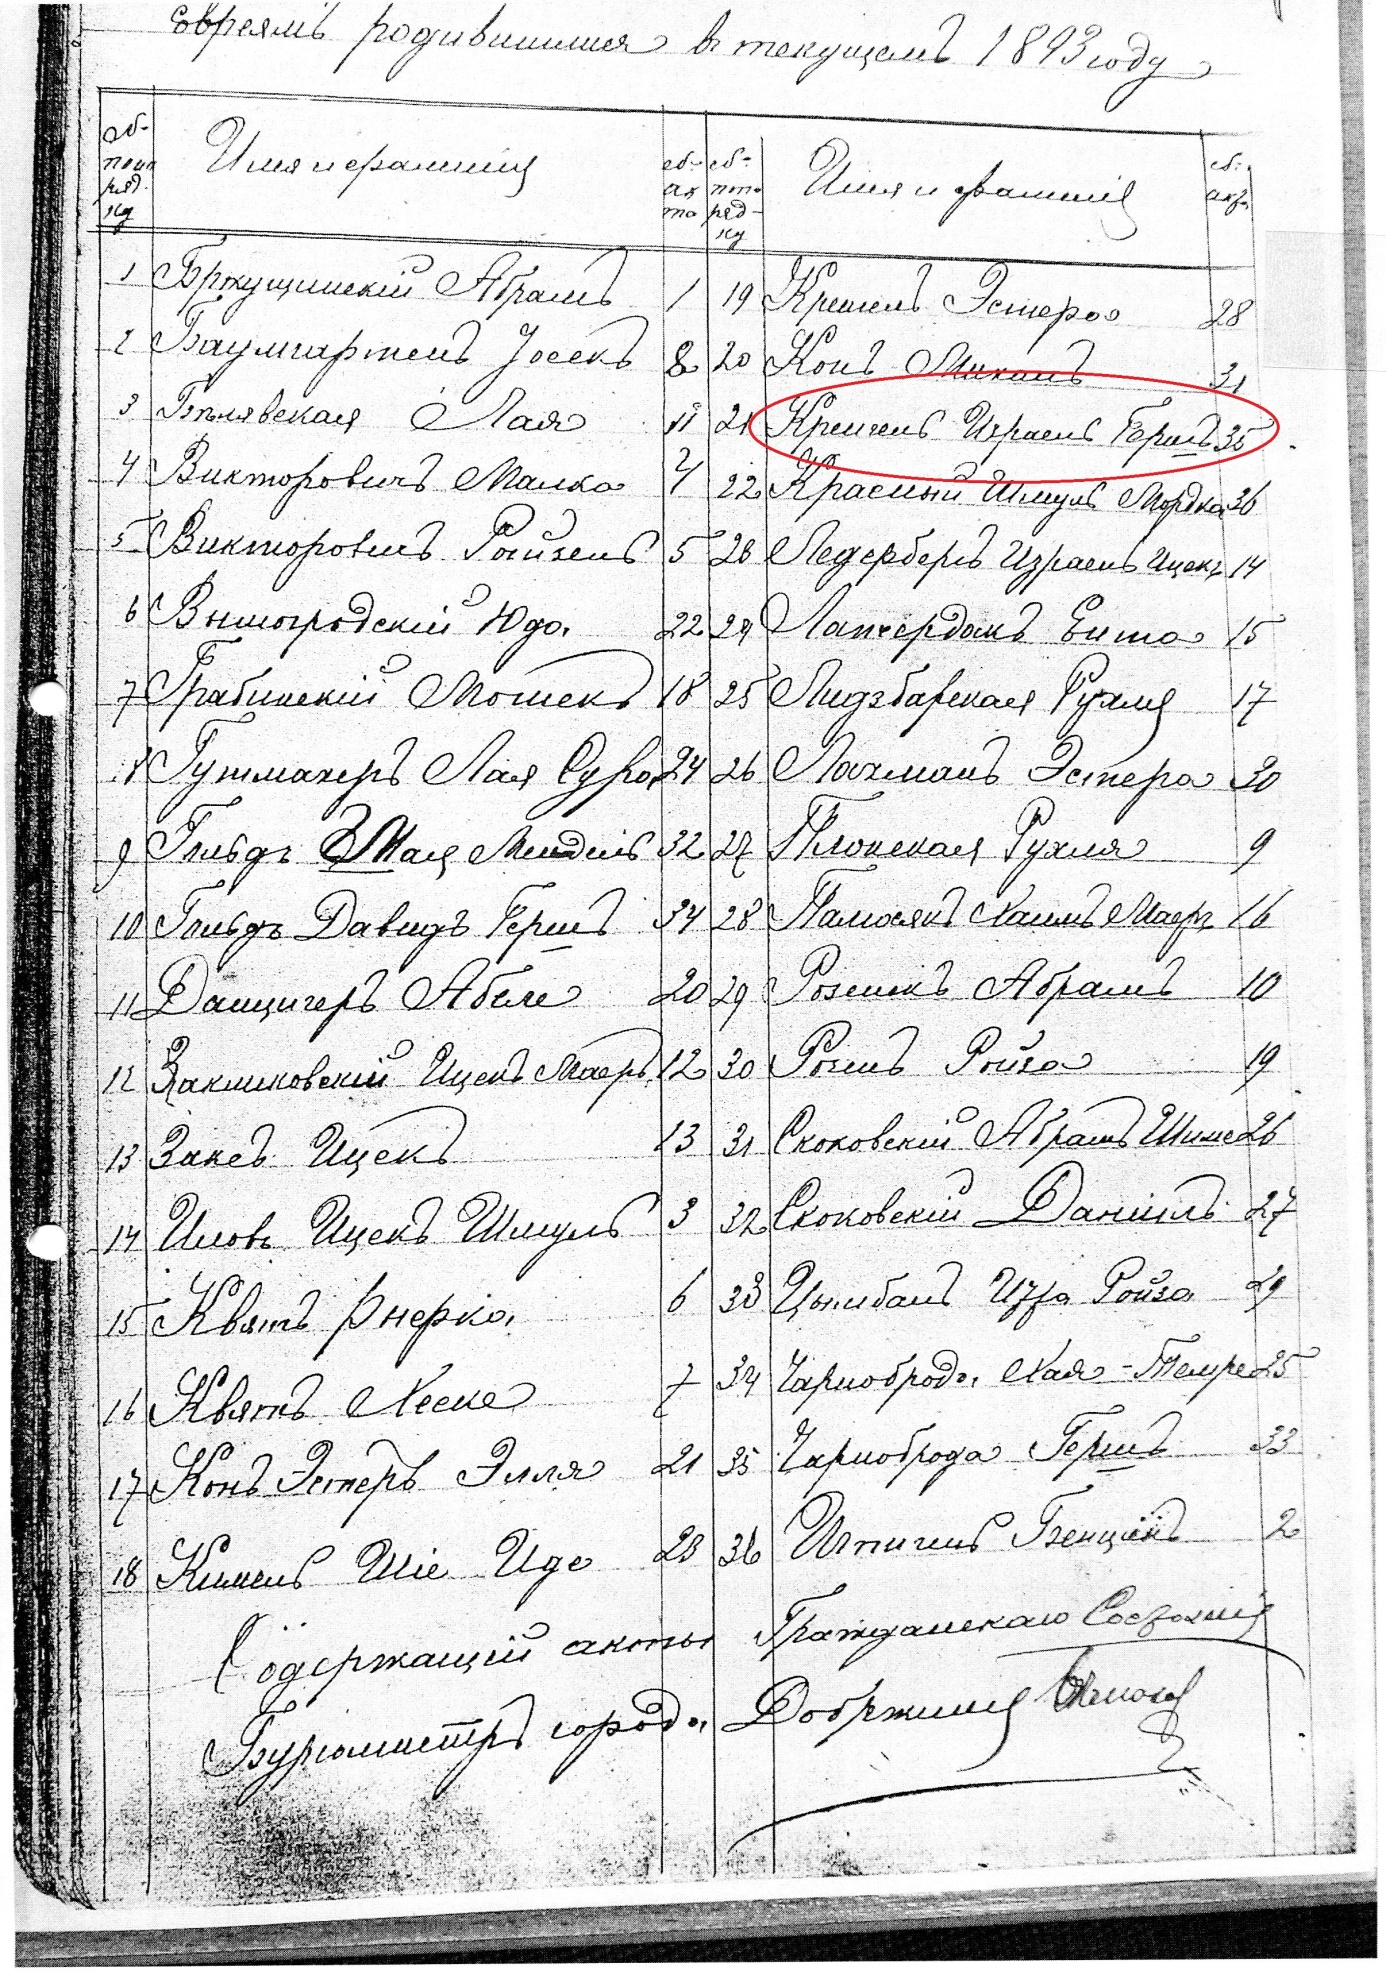 Евреямъ родившимся въ текущемъ 1893 году
№ по поряд ку Имя и фамилія № ак та № по поряд- ку Имя и фамилія № акта
1 Бржущинскій Абрамъ 1 19 Кремель Эстера 28
2 Баумгартенъ Іосекъ 8 20 Конъ Михалъ 31
3 Бѣлявская Лая 11 21 Кренцель Израель Гершъ 35
4 Викторовичъ Малка 4 22 Красный Шмуль Мордка 36
5 Викторовичъ Ройзель 5 23 Ледербергъ Израель Ицекъ 14
6 Вышогродскій Юда 22 24 Лапчердакъ Ента 15
7 Грабинскій Мошекъ 18 25 Лидзбарская Рухля 17
8 Гутмахеръ Лая Сура 24 26 Лахманъ Эстера 30
9 Гольдъ Мендель 32 27 Плонская Рухля 9
10 Гольдъ Давидъ Гершъ 34 28 Хаимъ Маеръ 16
11 Данцигеръ Абеле 20 29 Розенекъ Абрамъ 10
12 Закликовскій Ицекъ Маеръ 12 30 Розенъ Ройза 19
13 Заксъ Ицекъ 13 31 Скоковскій Абрамъ Шиме 26
14 Иловъ Ицекъ Шмуль 3 32 Скоковскій Даніилъ 27
15 Квятъ 6 33 Цымбалъ Ройза 29
16 Квятъ Хеске 7 34 Чарноброда Хая-Темре 25
17 Конъ Эстеръ Элля 21 35 Чарноброда Гершъ 33
18 Кимель Шіе Иде 23 36 Бенціенъ 2
Содержащій акты Гражданскаго Состоянія
Бургомистръ города Добржиня